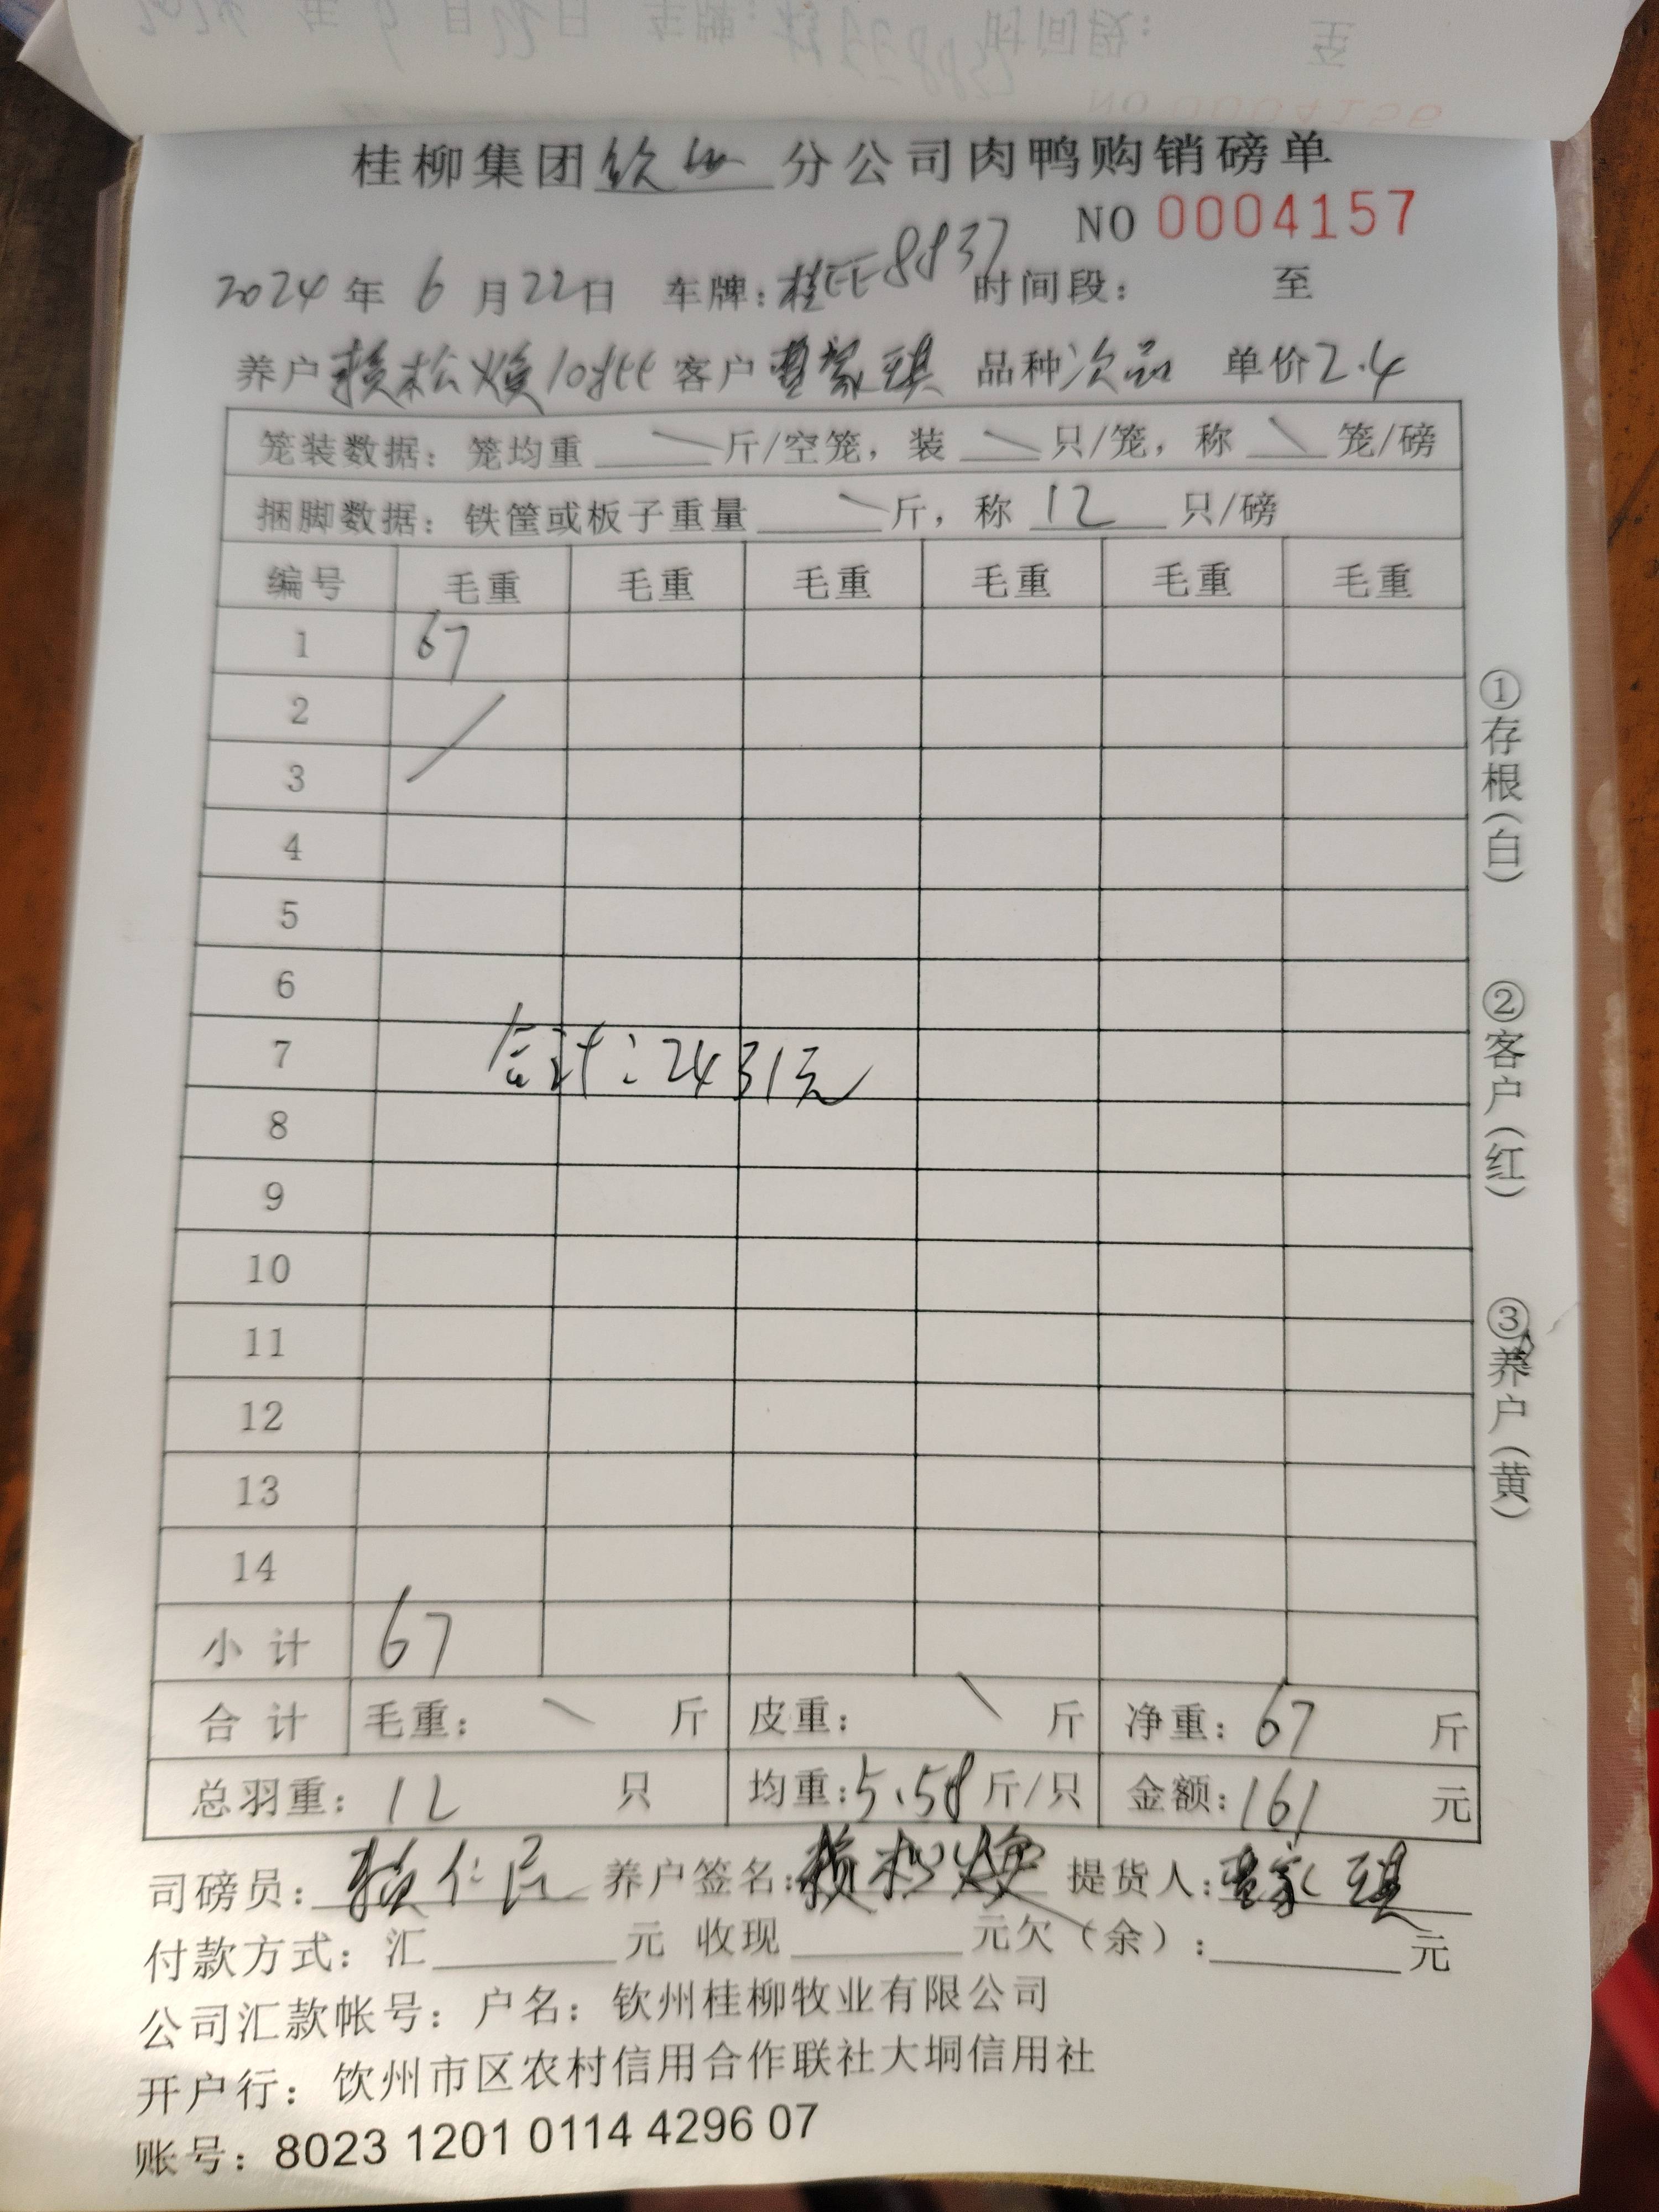 桂柳集团钦州分公司肉鸭购销磅单
NO 0004157
2024年6月22日 车牌:桂EE8837 时间段: 至
养户赖松焕10批 客户 家琪 品种次品 单价2.4
笼装数据: 笼均重 \ 斤/空笼, 装 \ 只/笼, 称 \ 笼/磅
捆脚数据: 铁筐或板子重量 \ 斤, 称 12 只/磅
编号 毛重 毛重 毛重 毛重 毛重 毛重
1 67
2 /
3
4
5
6
7 合计:2431元
8
9
10
11
12
13
14
小计 67
合计 毛重: \ 斤 皮重: \ 斤 净重: 67 斤
总羽重: 12 只 均重:5.58斤/只 金额:161 元
司磅员: 赖仁民 养户签名:赖松焕 提货人: 家琪
付款方式: 汇 元 收现 元欠(余): 元
公司汇款帐号: 户名: 钦州桂柳牧业有限公司
开户行: 钦州市区农村信用合作联社大垌信用社
账号: 8023 1201 0114 4296 07
①存根(白)
②客户(红)
③养户(黄)